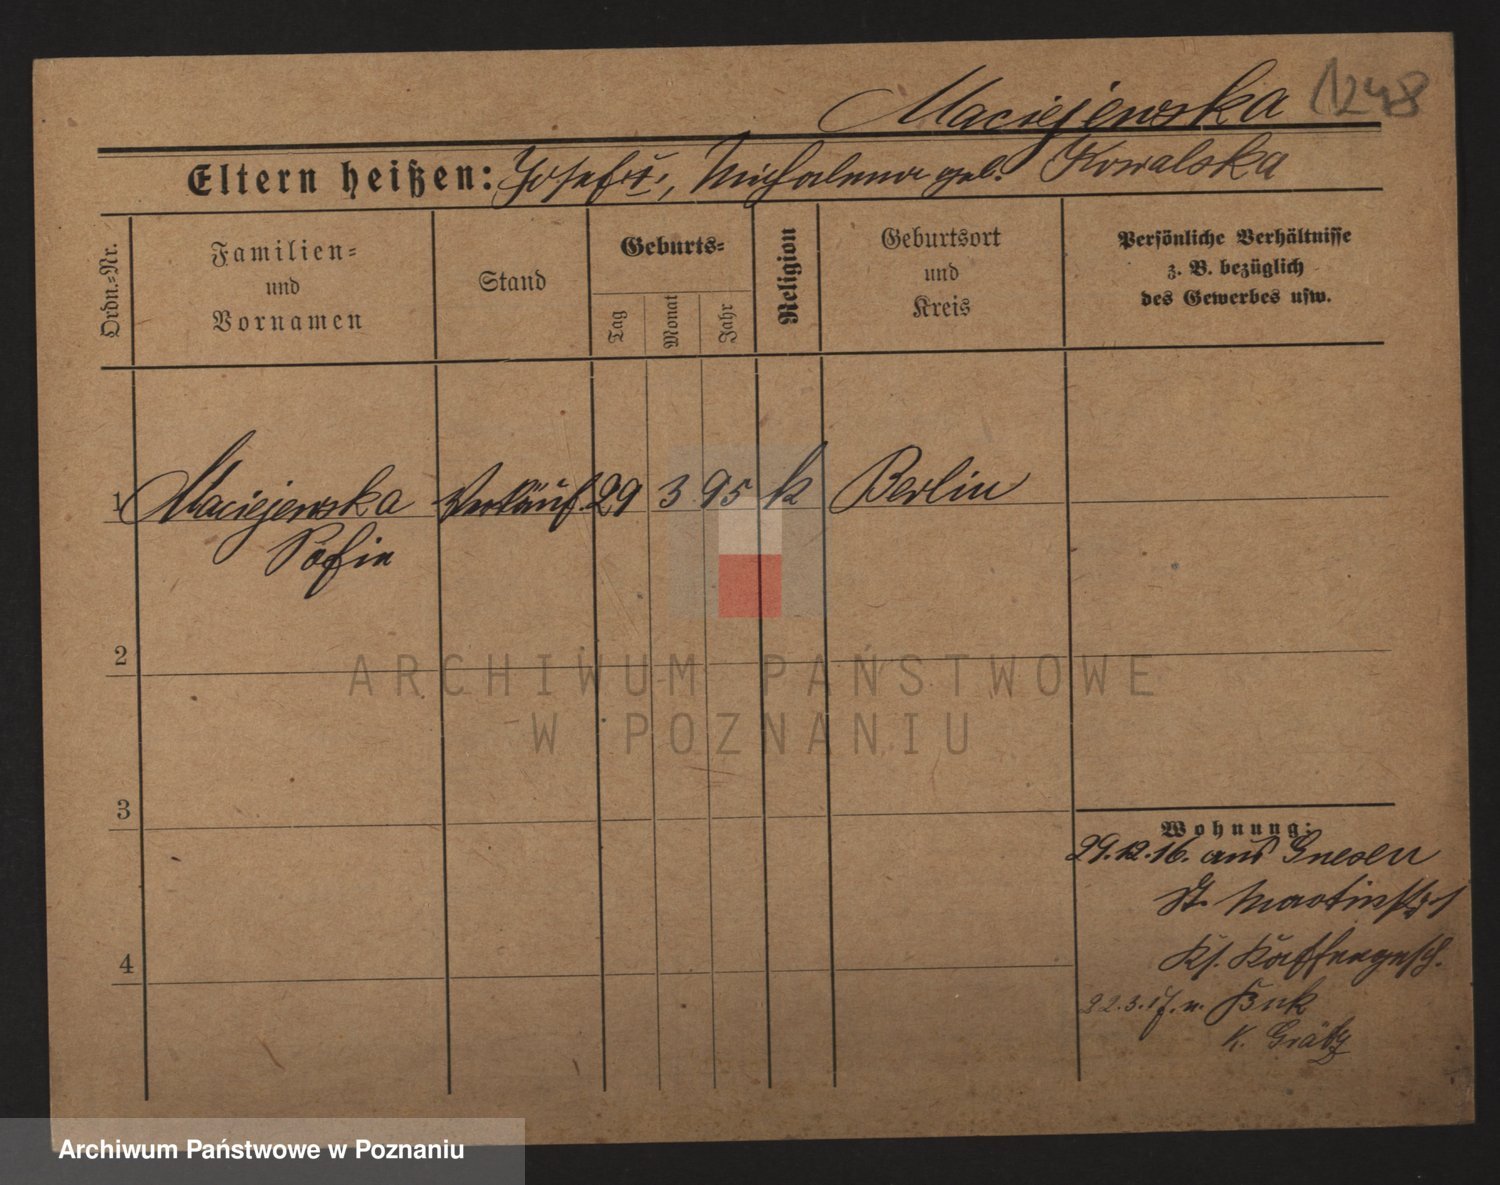 Maciejewska 1248
Eltern heißen: Josef u., Michalina geb. Kowalska
Ordn.-Nr.
Familien-
und
Vornamen
Stand
Geburts-
Tag
Monat
Jahr
Religion
Geburtsort
und
Kreis
Persönliche Verhältnisse
z. B. bezüglich
des Gewerbes usw.
1 Maciejewska Verkäuf. 29 3 95 k Berlin
Sofie
2
3
4
Wohnung:
29.12.16. aus Gnesen
St. Martinstr.
Kaffeegesch.
22.3.17. n. Buk
K. Grätz
ARCHIWUM PAŃSTWOWE
W POZNANIU
Archiwum Państwowe w Poznaniu